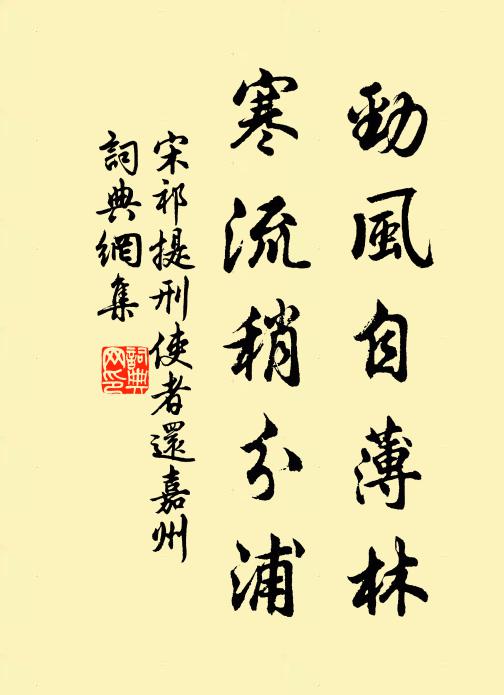 勁風自薄林
寒流稍分浦
宋祁提刑使者還嘉州
詞典網集
詞典
网印